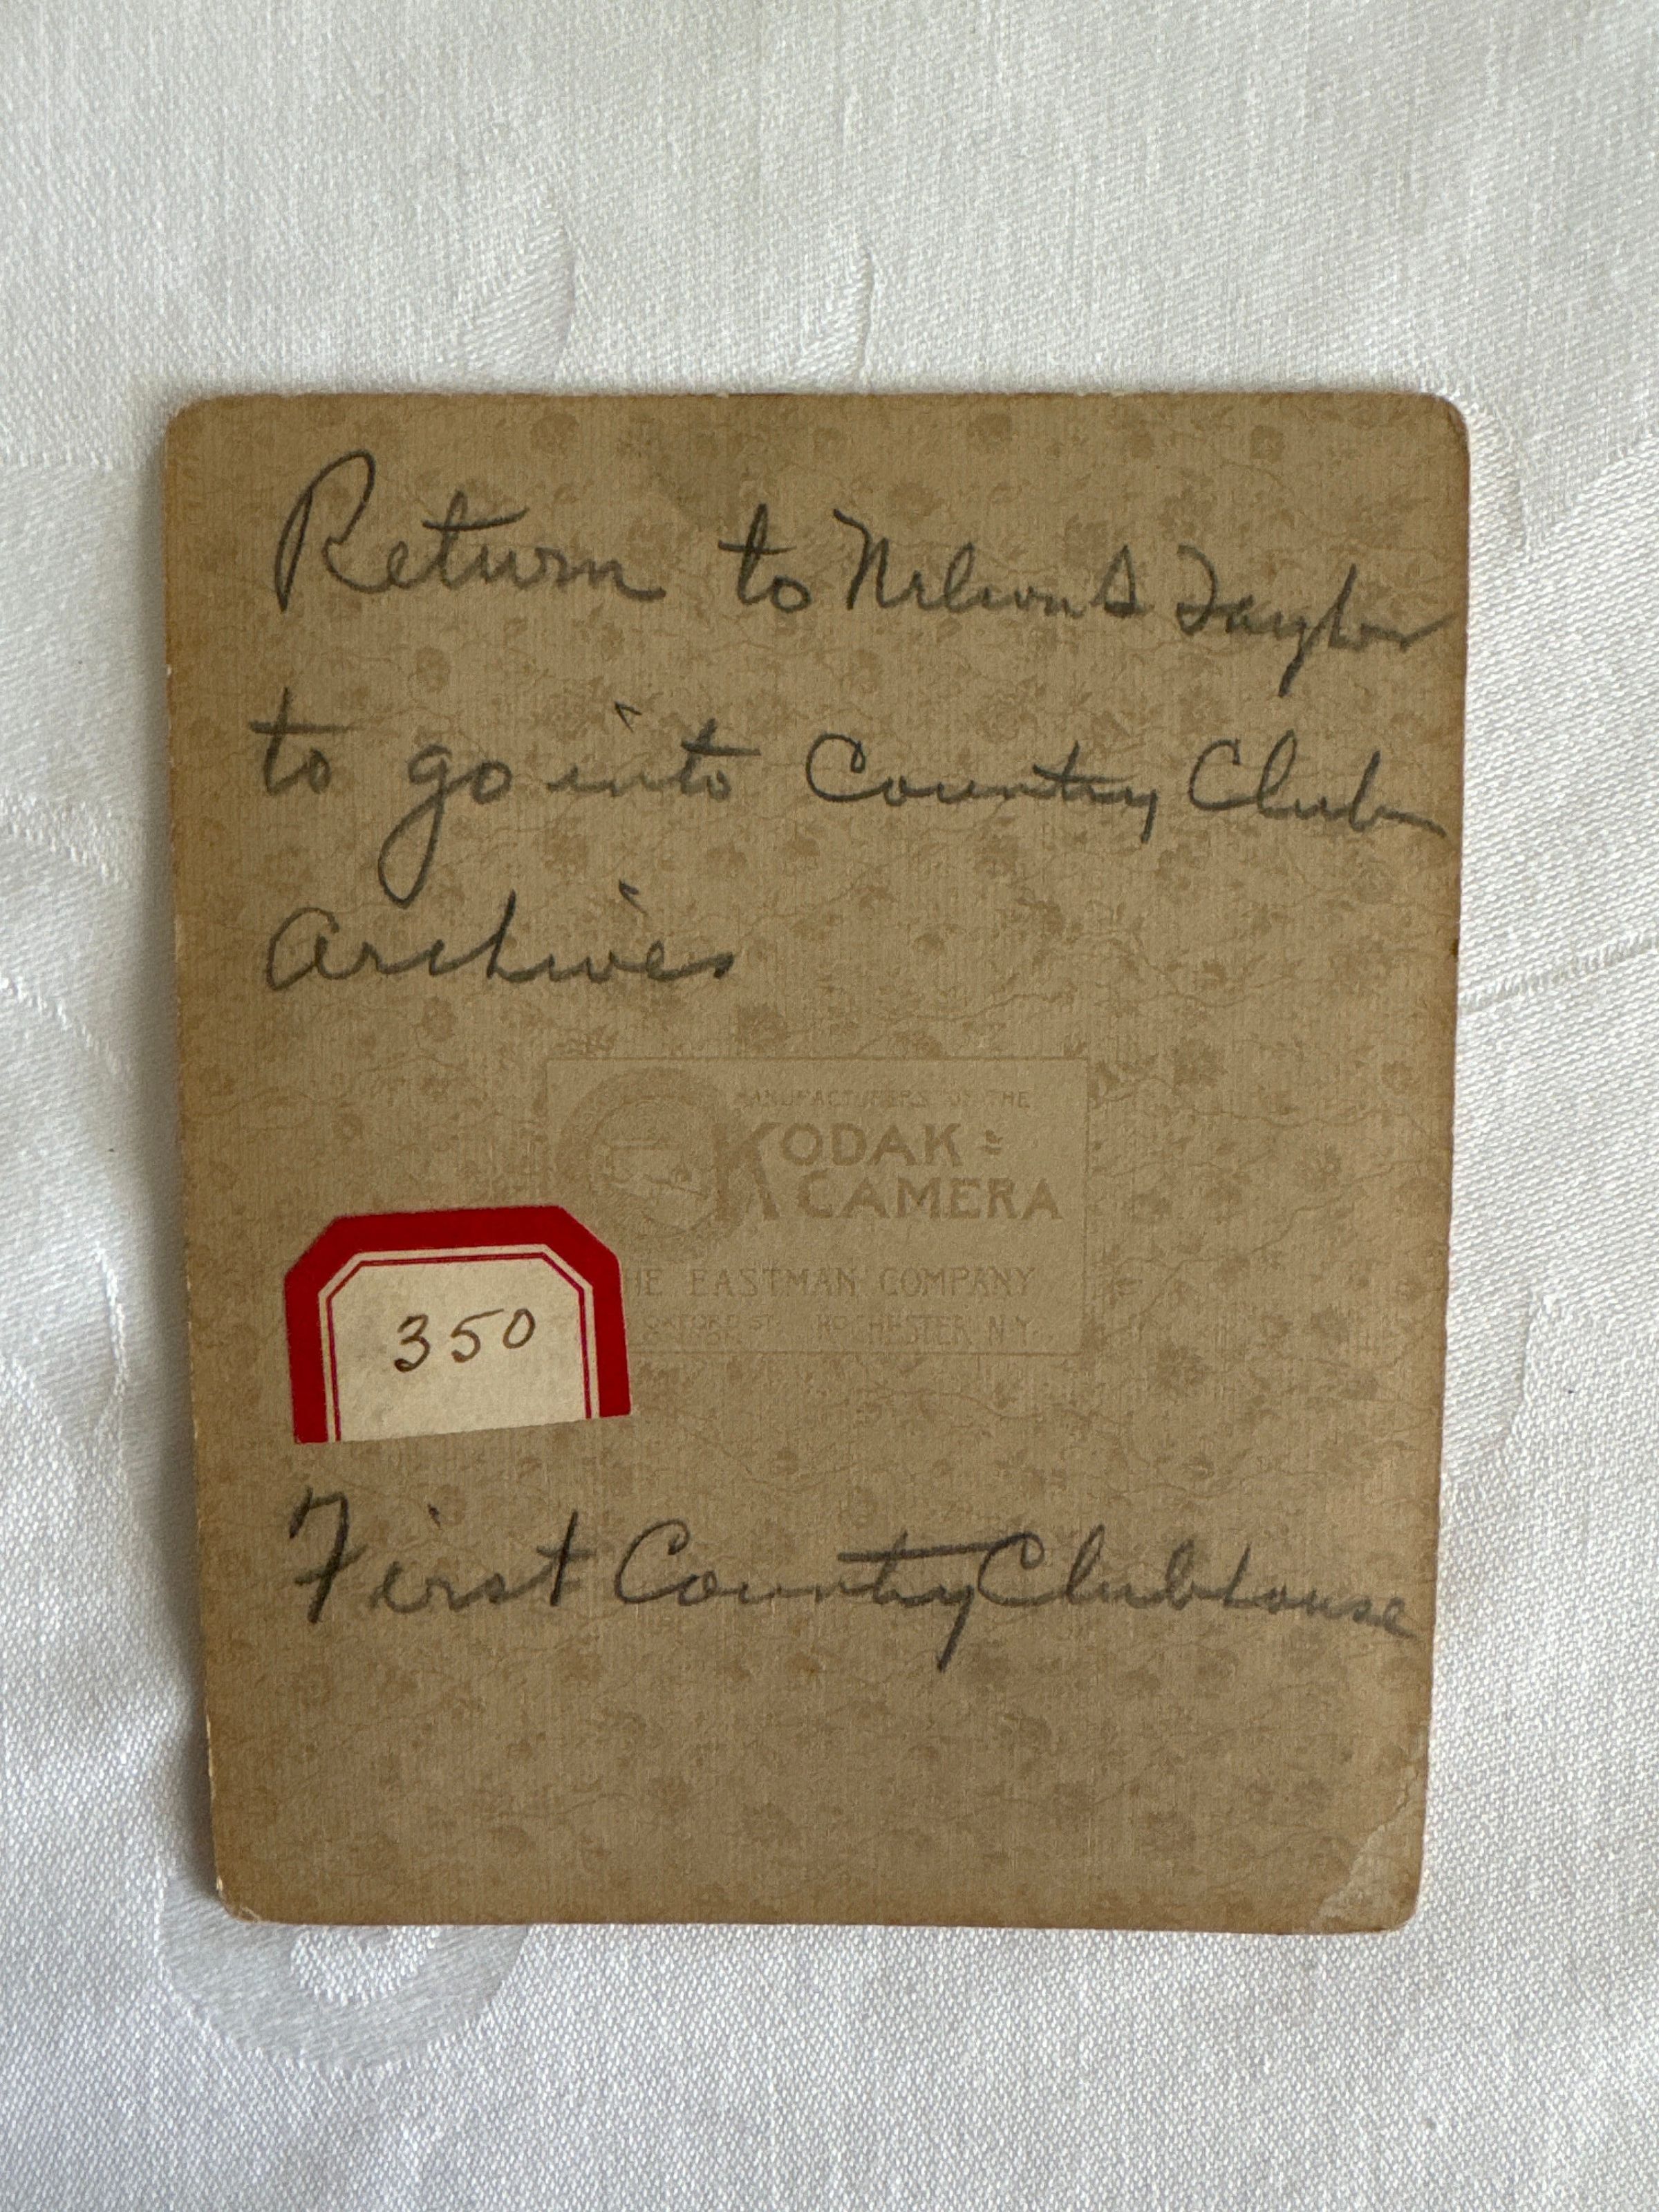 Return to Nelson S Taylor
to go into Country Club
Archives
MANUFACTURERS OF THE
KODAK
CAMERA
THE EASTMAN COMPANY
OXFORD ST. ROCHESTER N.Y.
350
First Country Clubhouse